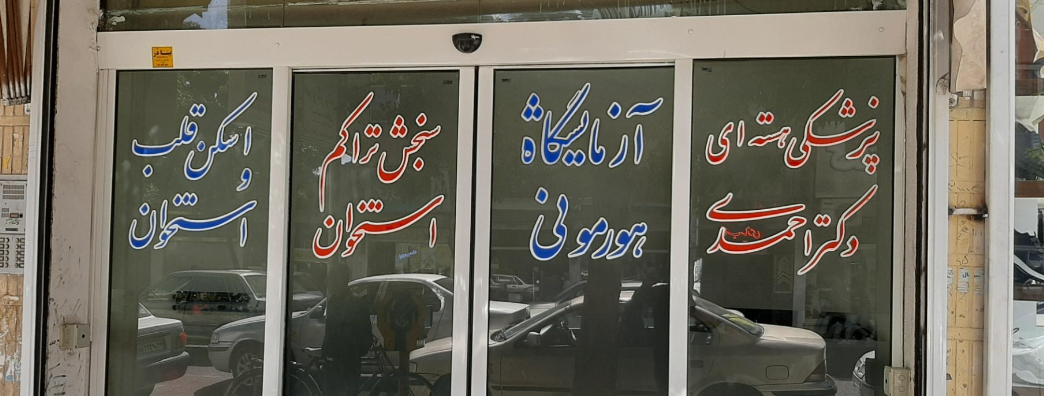 پزشکی هسته ای
دکتر احمدی
آزمایشگاه
هورمونی
سنجش تراکم
استخوان
اسکن قلب
و
استخوان